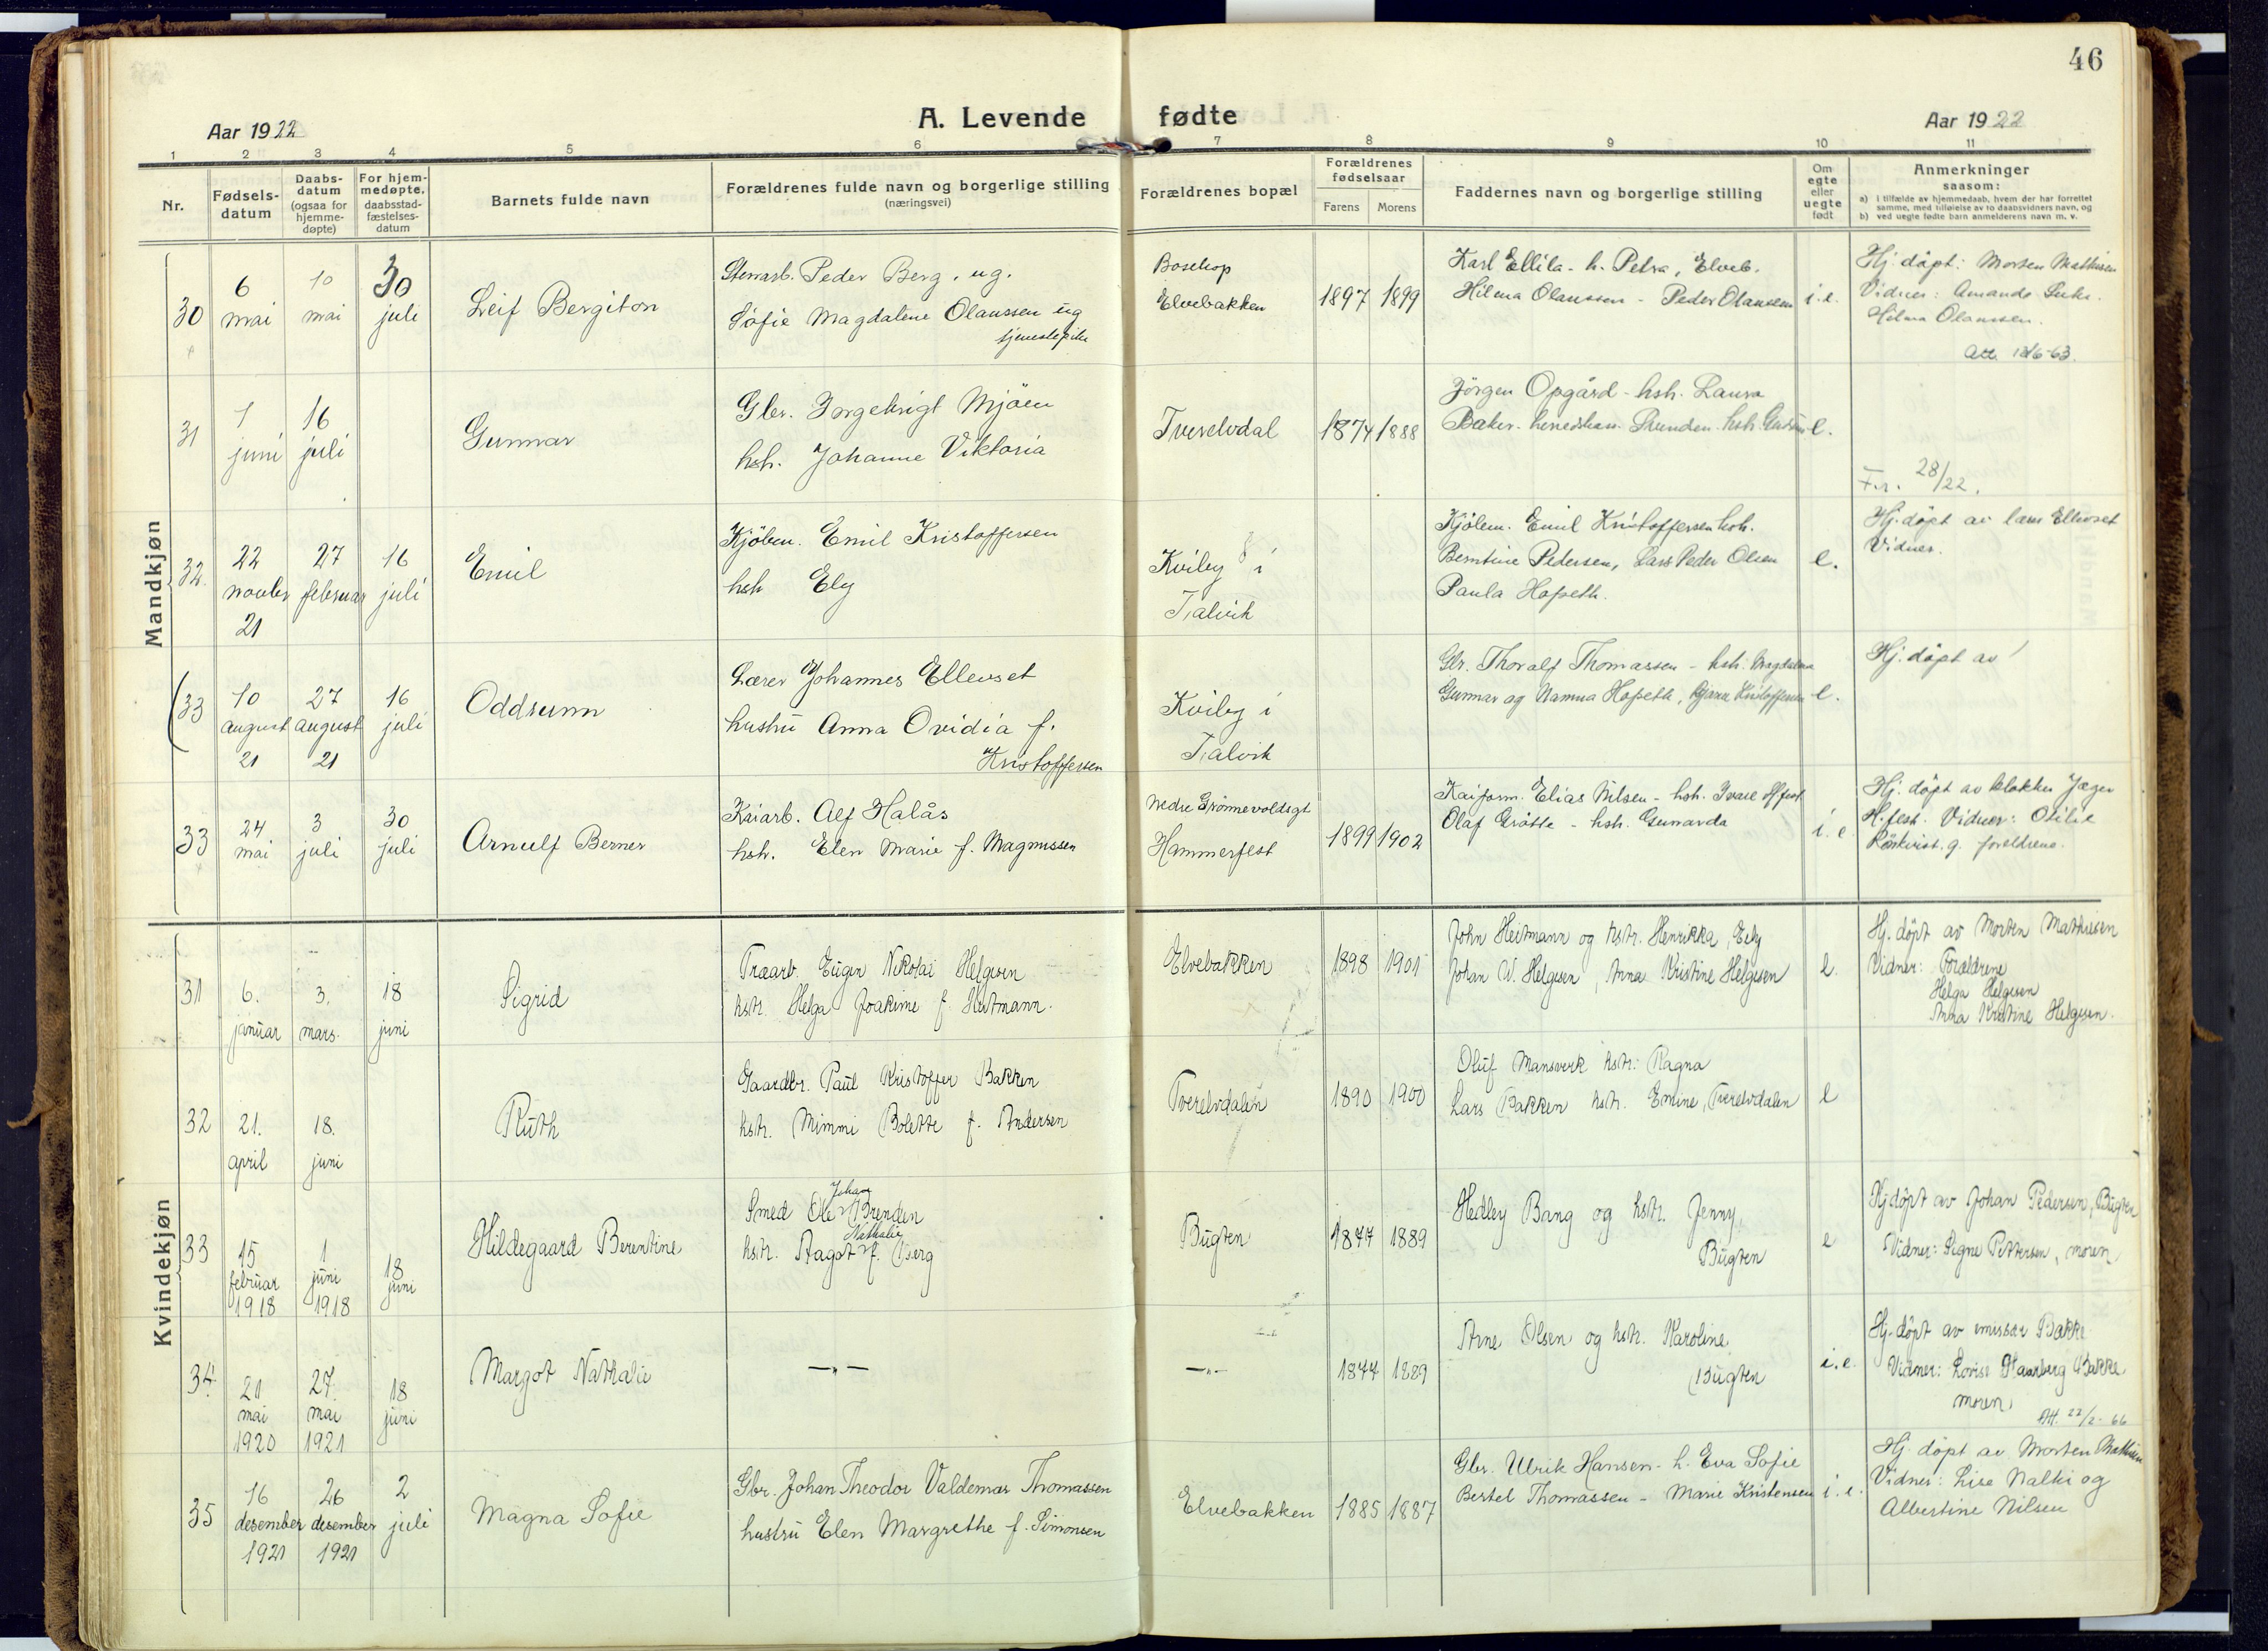 46
Aar 1922
A. Levende fødte
Aar 1922
1 2 3 4 5 6 7 8 9 10 11
Nr.
Fødsels-
datum
Daabs-
datum
(ogsaa for
hjemme-
døpte)
For hjem-
medøpte,
daabsstad-
fæstelses-
datum
Barnets fulde navn
Forældrenes fulde navn og borgerlige stilling
(næringsvei)
Forældrenes bopæl
Forældrenes
fødselsaar
Farens Morens
Faddernes navn og borgerlige stilling
Om
egte
eller
uegte
født
Anmerkninger
saasom:
a) i tilfælde av hjemmedaab, hvem der har forrettet
samme, med tilføielse av to daabsvidners navn, og
b) ved uegte fødte barn anmelderens navn m. v.
Mandkjøn
30
6
mai
10
mai
30
juli
Leif Bergiton
Stenarb. Peder Berg. ug.
Sofie Magdalene Olaussen ug
tjenestepike
Bosekop
Elvebakken
1897 1899
Karl Ellila - h. Petra, Elveb.
Hilma Olaussen - Peder Olaussen
i.e.
Hj. døpt: Morten Mathisen
Vidner: Amanda
Hilma Olaussen.
Att. 18/6-63.
31
7
juni
16
juli
Gunnar
Gbr. Ingebrigt Mjøen
hsh. Johanne Viktoria
Tverelvdal
1874 1888
Jörgen Opgård - hsh. Laura
Baker. hsh.
e.
F.r. 28/22.
32.
22
novbr
21
27
februar
16
juli
Emil
Kjöbm. Emil Kristoffersen
hsh Ely
Kviby i
Talvik
Kjöbm. Emil Kristoffersen hsh.
Berntine Pedersen, Lars Peder Olsen
Paula Hopseth.
e.
Hj. døpt av lærer Ellevset
Vidner.
33
10
august
21
27
august
21
16
juli
Oddrunn
Lærer Johannes Ellevset
hustru Anna Ovidia f.
Kristoffersen
Kviby i
Talvik
Gbr. Thoralf Thomassen - hsh. Magdalena
Gunnar og Nanna Hopseth, Bjarne Kristoffersen
e.
Hj. døpt av
33
24
mai
3
juli
30
juli
Arnulf Berner
Kaiarb. Alf Halås
hsh. Elen Marie f. Magnussen
nedre Grønnevoldsgt
Hammerfest
1899 1902
Kaiform. Elias Nilsen - hsh. H.fest
Olaf Gråtte - hsh. Gunarda
i.e.
Hj. døpt av klokker Jæger
H.fest. Vidner: Otilie
Rönkvist. g. foreldrene.
Kvindekjøn
31
6.
januar
3.
mars.
18
juni
Sigrid
Træarb. Eugen Nikolai Helgesen
hstr. Helga Joakime f. Heitmann.
Elvebakken
1898 1901
John Heitmann og hstr. Henrikka, Ely
Johan W. Helgesen, Anna Kristine Helgesen
e.
Hj. døpt av Morten Mathisen
Vidner: Forældrene
Helga Helgesen
Anna Kristine Helgesen.
32
21.
april
18.
juni
Ruth
Gaardbr. Paul Kristoffer Bakken
hstr. Mimmi Bolette f. Andersen
Tverelvdalen
1890 1900
Oluf Mansverk hstr: Ragna
Lars Bakken hstr. Emine, Tverelvdalen
e
33
15
februar
1918
1
juni
1918
18
juni
Hildegaard Berentine
Johan
Smed Ole Brenden
Nathalie
hstr. Aagot f. Berg
Bugten
1877 1889
Hedley Bang og hstr. Jenny,
Bugten
e
Hj døpt av Johan Pedersen, Bugten
Vidner: Signe Pettersen, moren
34.
21
mai
1920
27.
mai
1921
18
juni
Margot Nathalie
—„—
—„—
1877 1889
Arne Olsen og hstr. Karoline,
Bugten
i.e.
Hj. døpt av emissær Bakke
Vidner: Lovise Haarberg Bakke
moren.
Att. 22/2-66
35
16
desember
1921
26
desember
1921
2
juli
Magna Sofie
Gbr. Johan Theodor Valdemar Thomassen
hustru Elen Margrethe f. Simonsen
Elvebakken
1885 1887
Gbr. Ulrik Hansen - h. Eva Sofie
Bertel Thomassen - Marie Kristensen
i.e.
Hj. døpt av Morten Mathisen
Vidner: Lise Nalki og
Albertine Nilsen